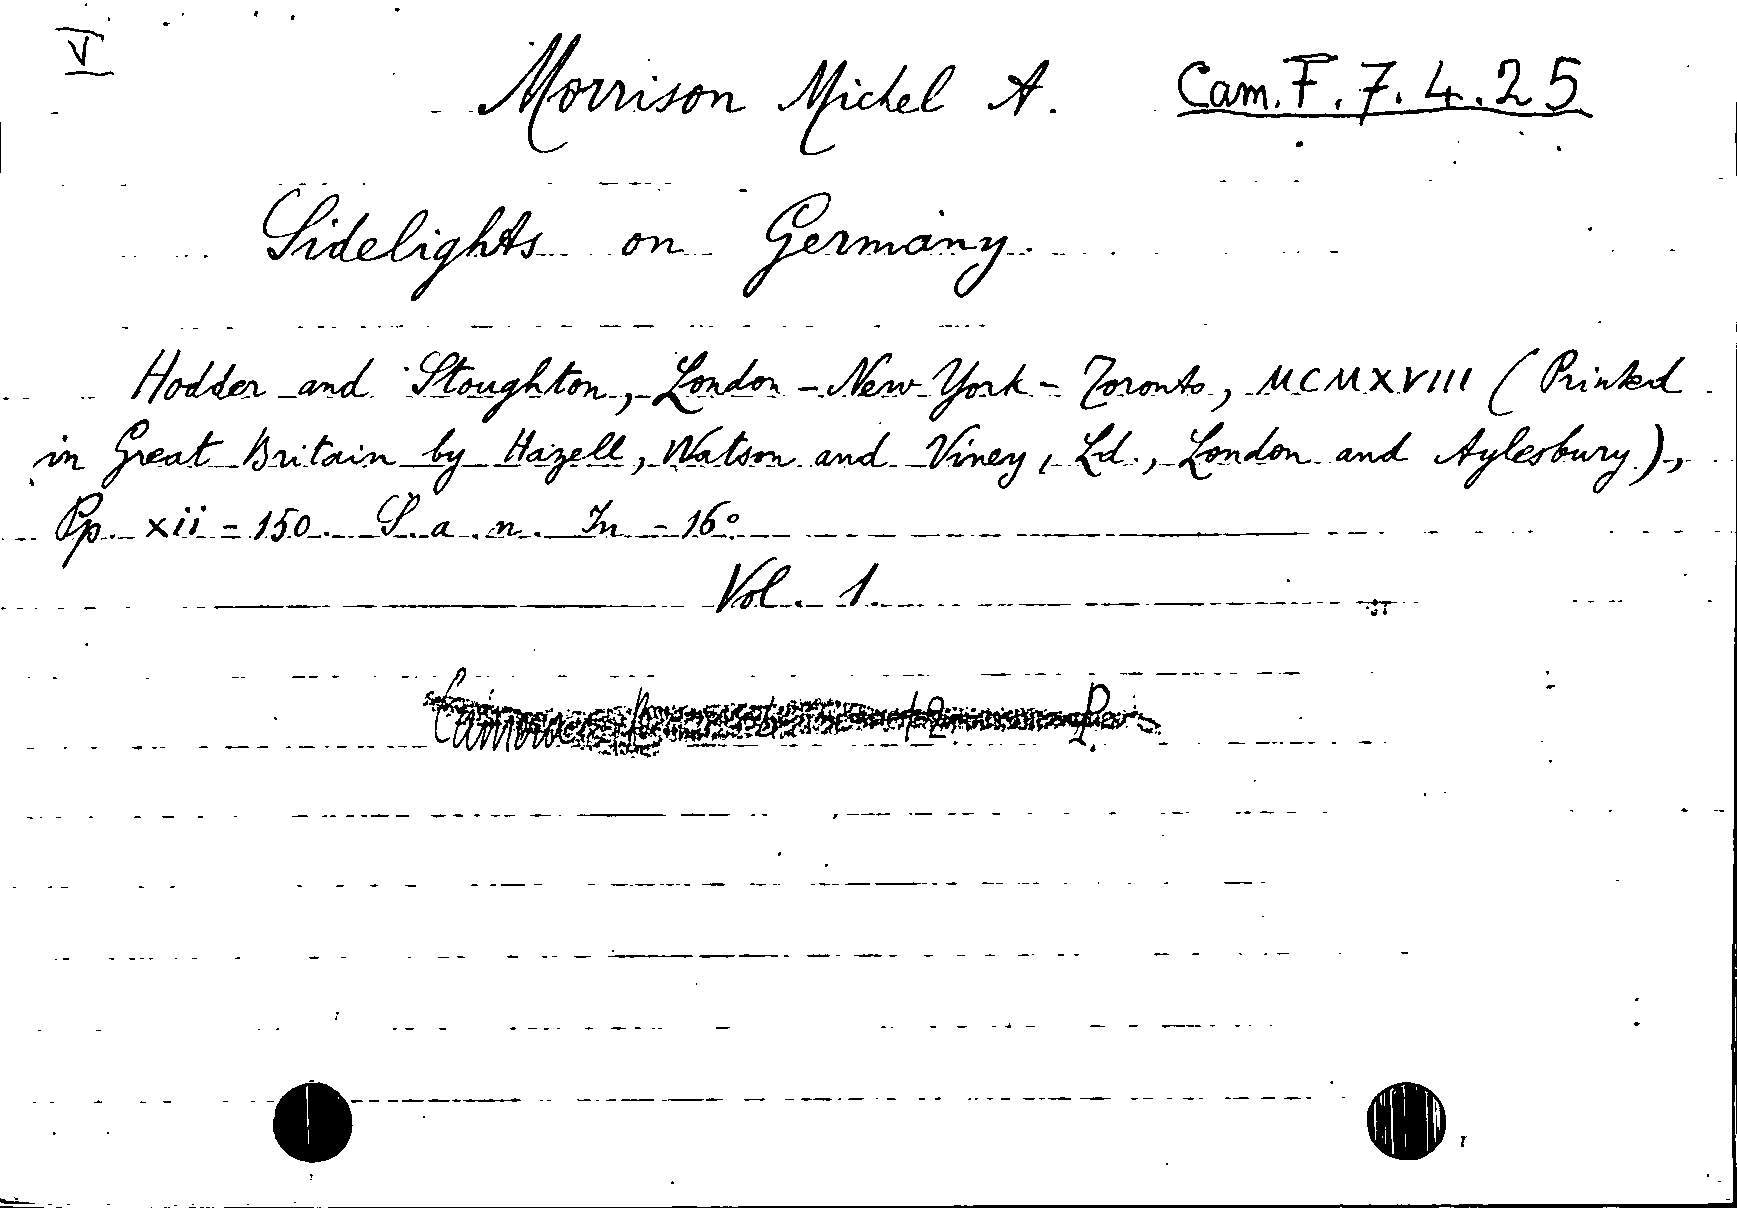 V
Morrison Michel A. Cam. F. 7. 4. 25
Sidelights on Germany.
Hodder and Stoughton, London - New York - Toronto, MCMXVIII ( Printed
in Great Britain by Hazell, Watson and Viney, Ld., London and Aylesbury ),
Pp. xii = 150. S. a. n. In - 16º
Vol. 1.